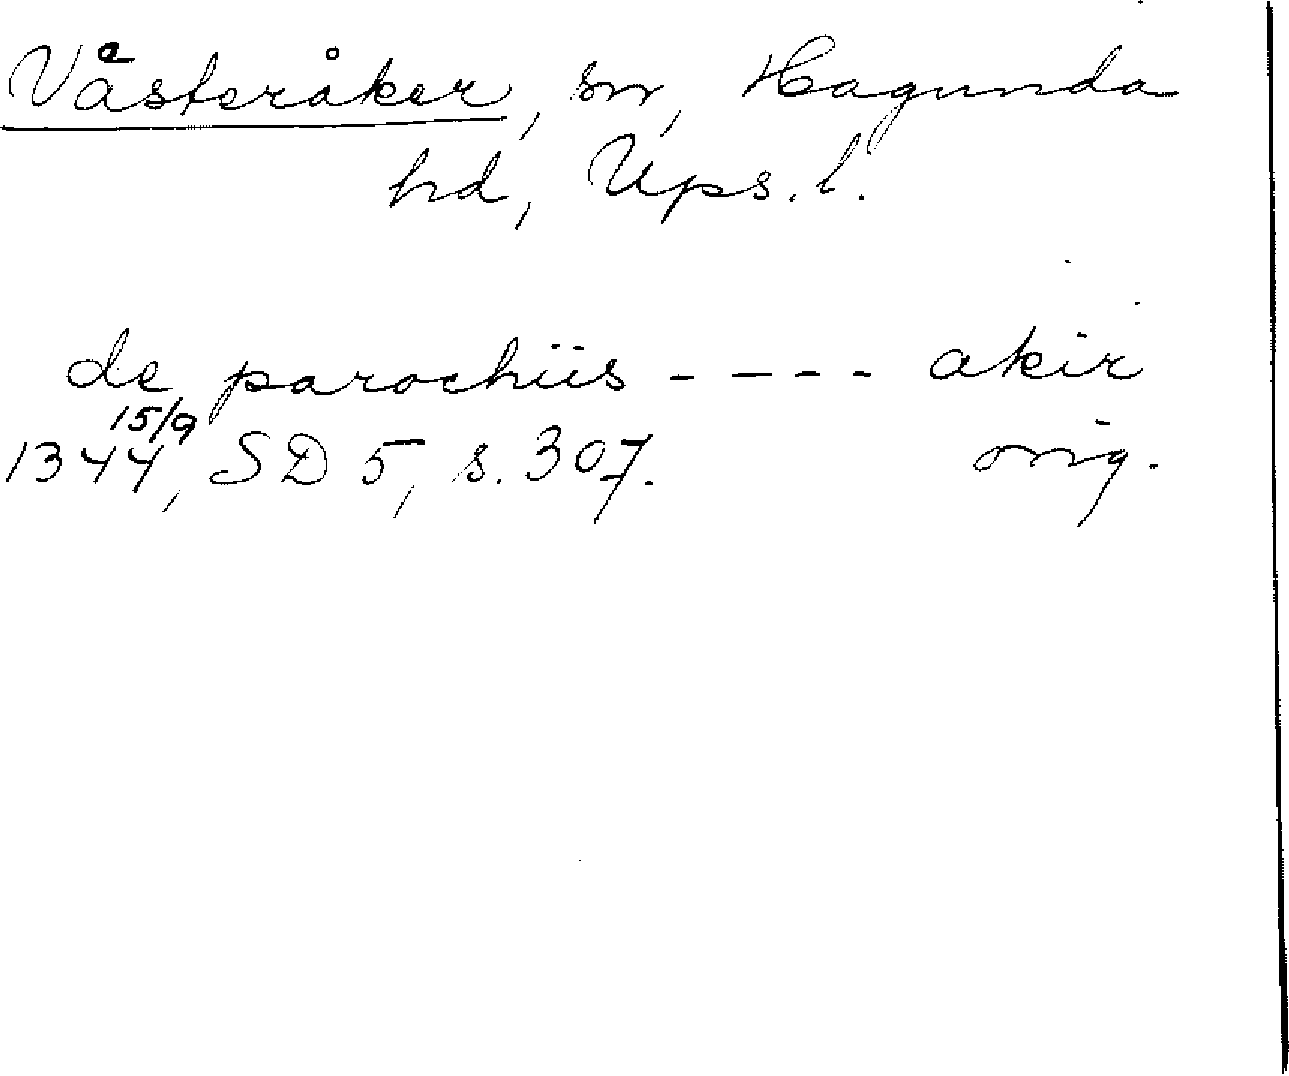 Västeråker, sn, Hagunda
hd, Ups. l.
de parochiis - - - - akir
1344 15/9, SD 5, s. 307. orig.